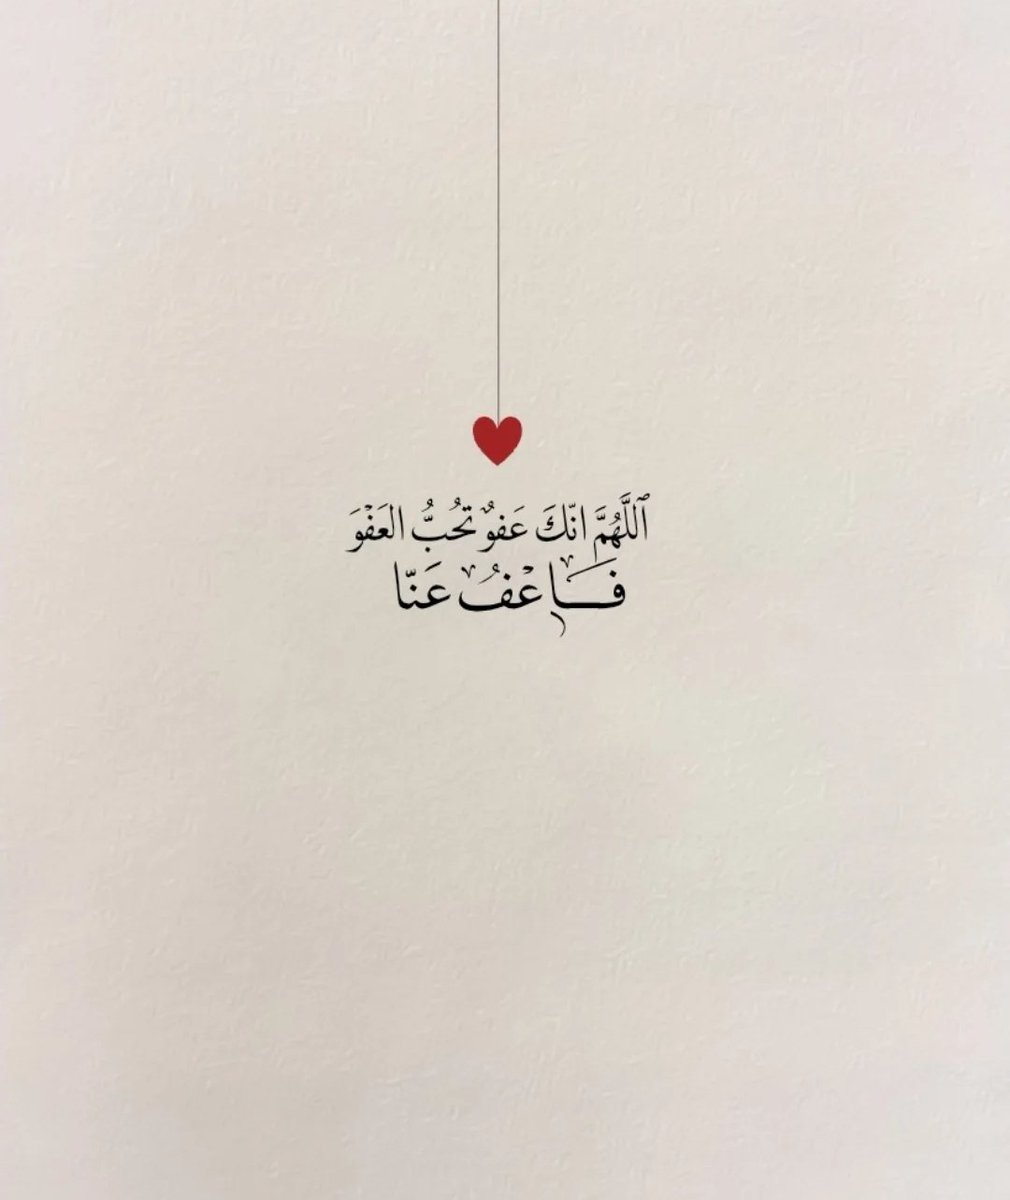 ٱللَّهُمَّ انّكَ عَفوٌ تُحُبُّ العَفْوَ
فَاعْفُ عَنّا